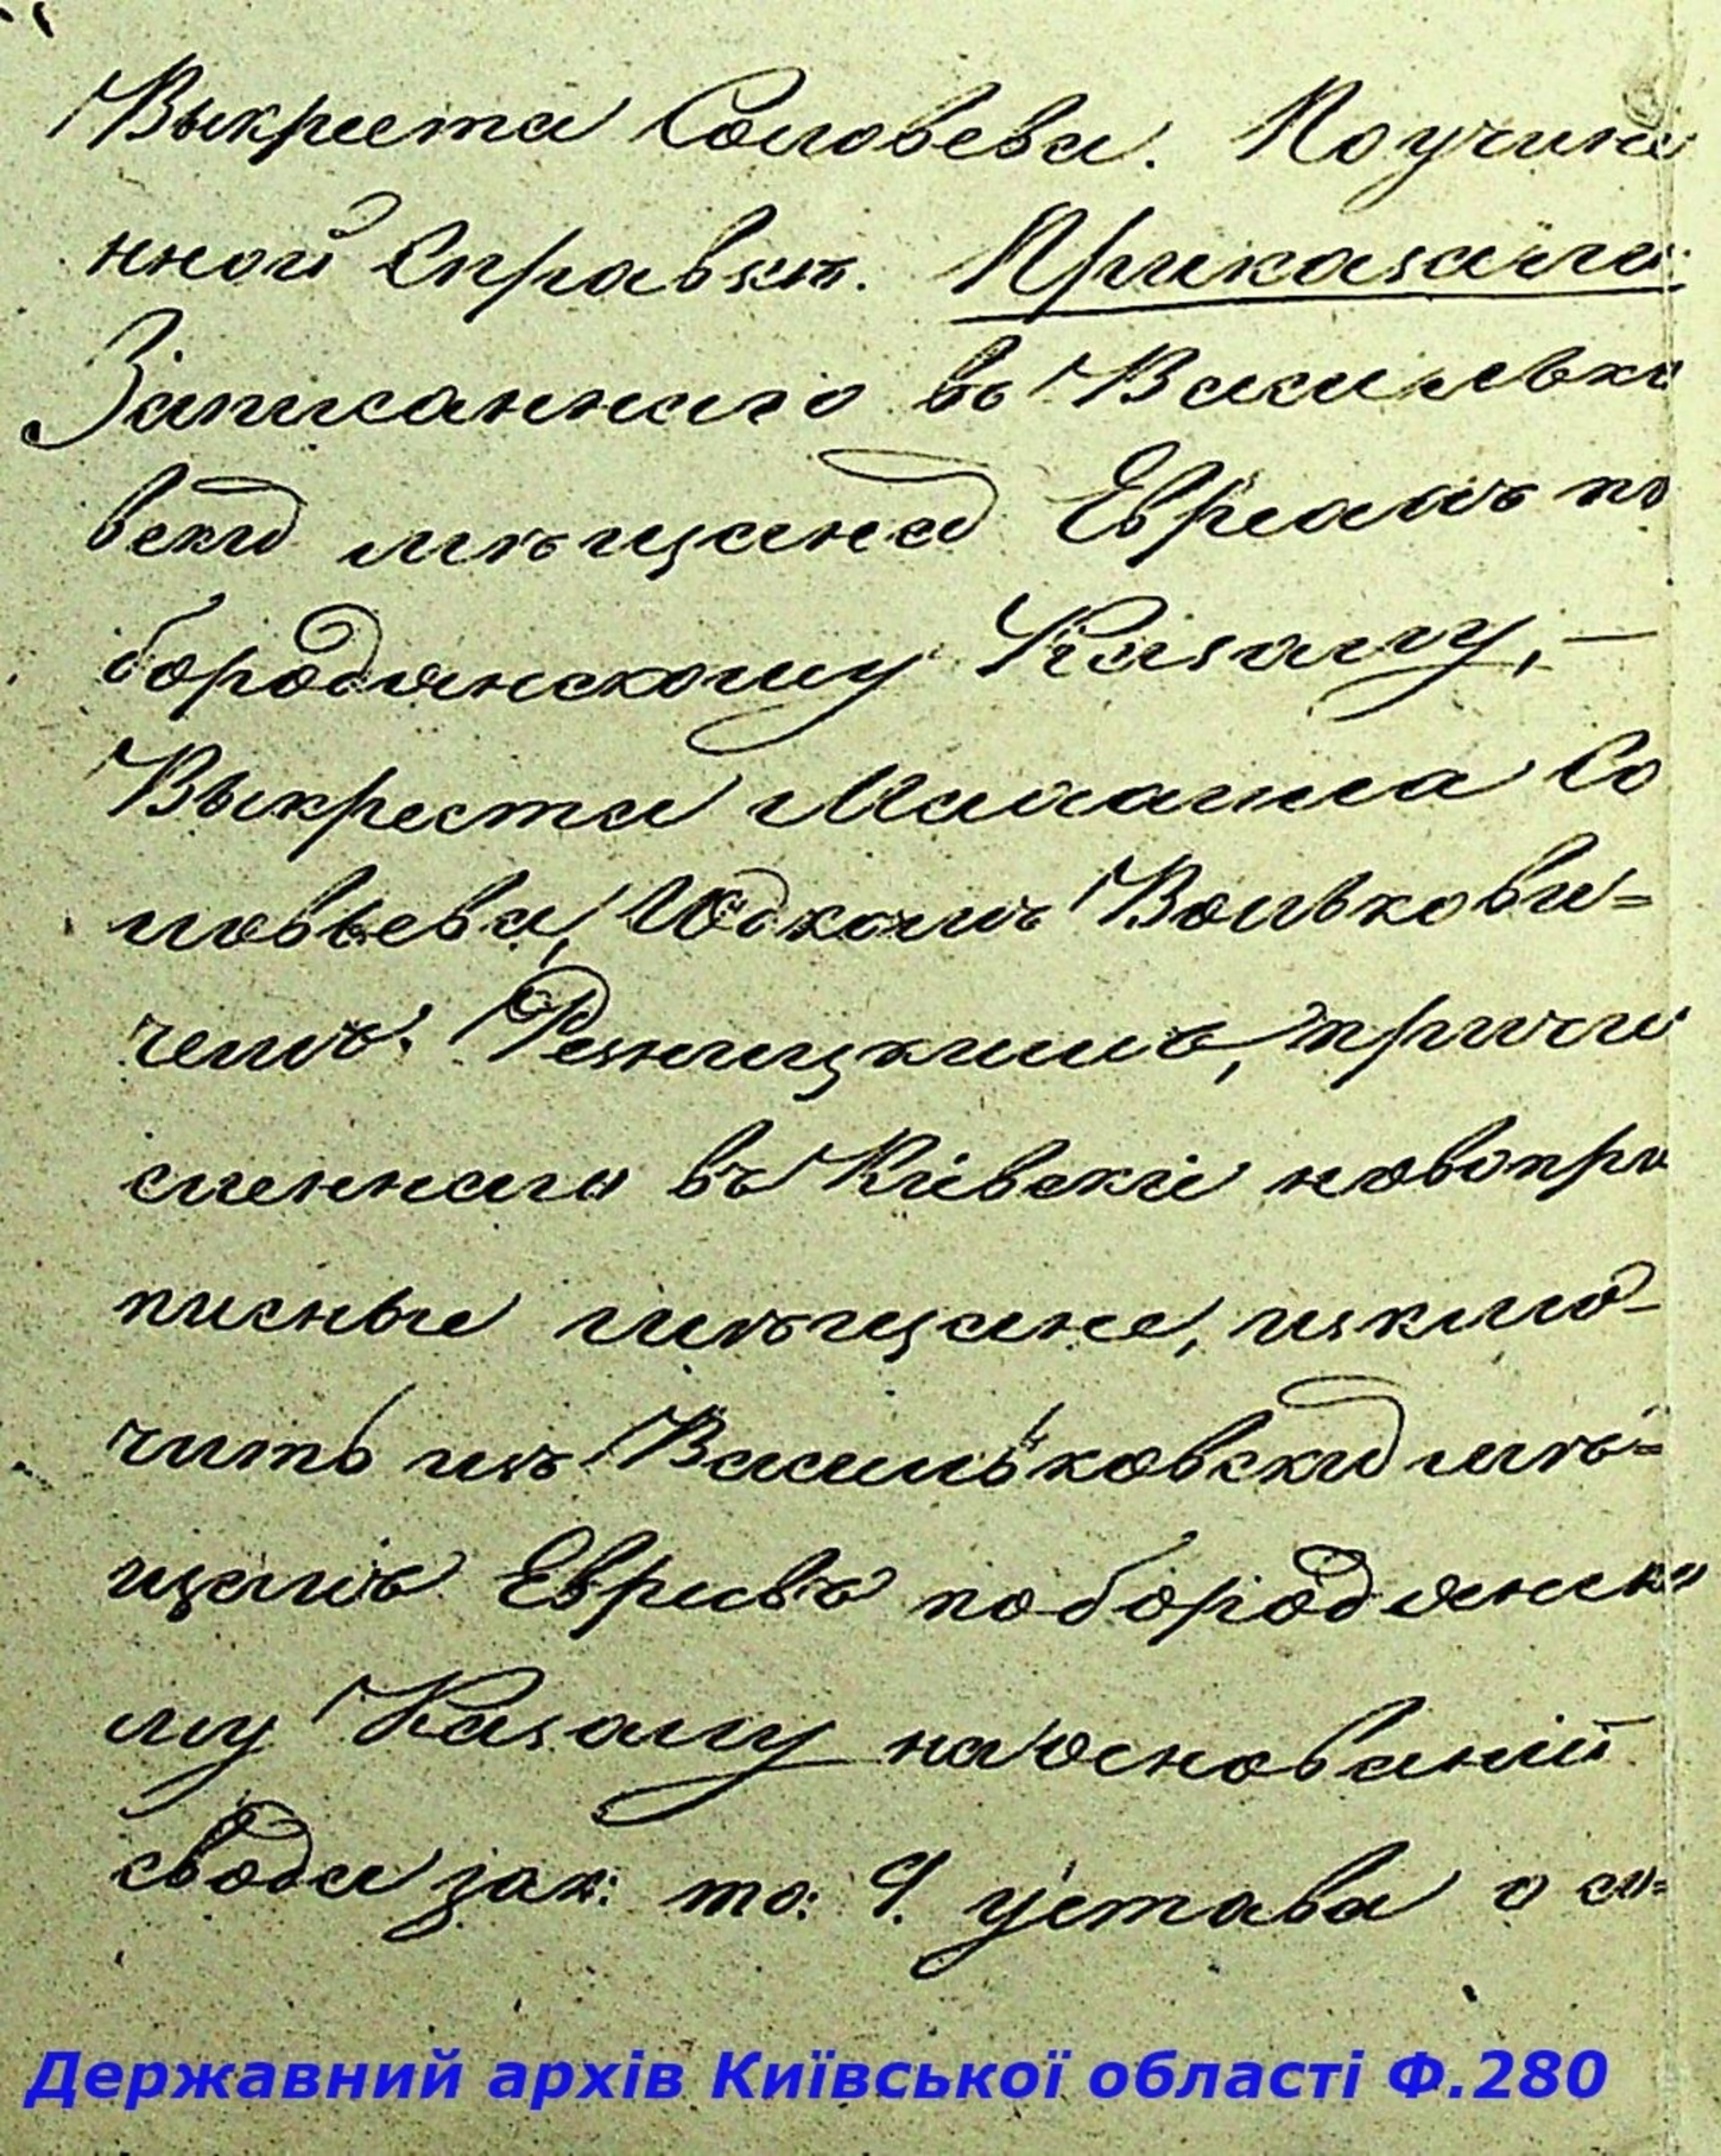 Выкреста Соловьева. Поучине
нной Справкѣ. Приказали:
Записаннаго въ Василько
вскіхъ мѣщанах Евреамъ по
бородянскому Кагалу, —
Выкреста Михаила Со
ловьева, Юдкомъ Волькови=
чемъ Резницкимъ, причи
сленнаго въ Кіевскіе новопри
писные мѣщане, исклю-
чить изъ Васильковскихъ мѣ=
щанъ Евреевъ по бородянско
му Кагалу на основаніи
свода зак: то: 9. устава о со=
Державний архів Київської області Ф.280